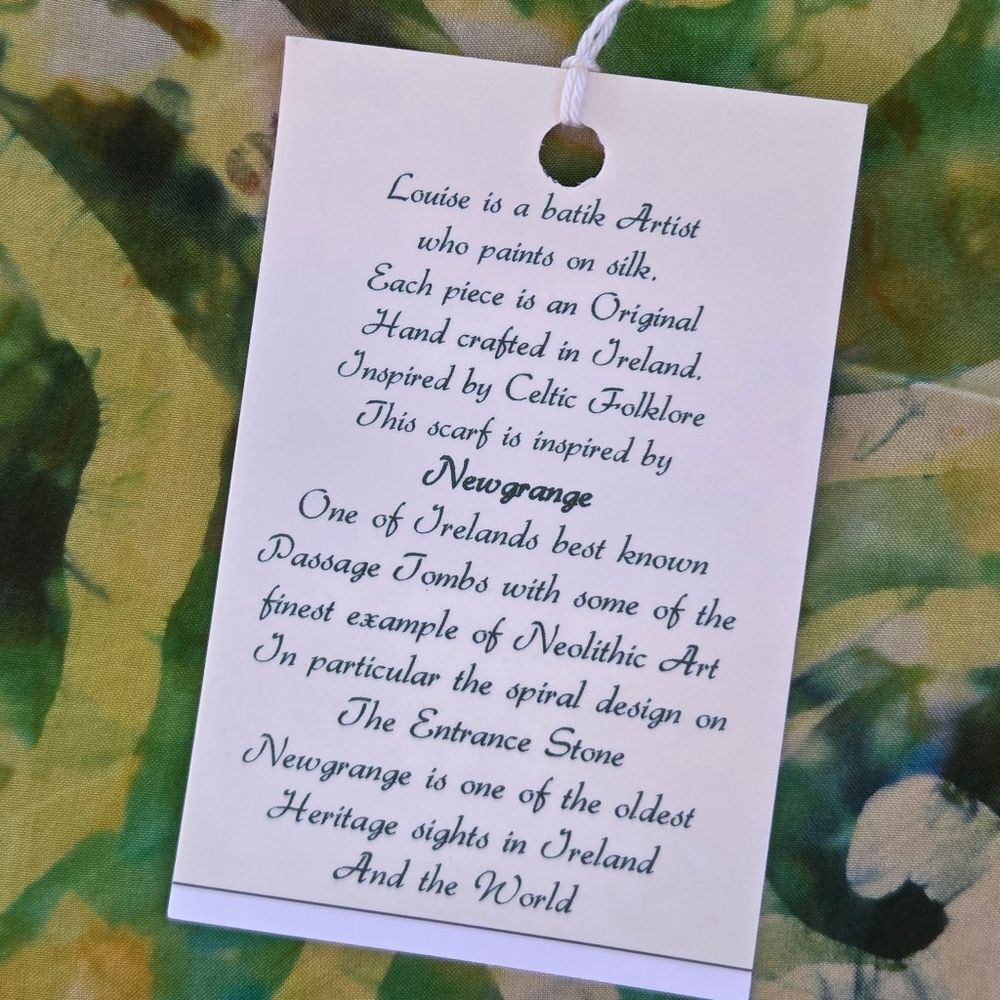 Louise is a batik Artist
who paints on silk.
Each piece is an Original
Hand crafted in Ireland.
Inspired by Celtic Folklore
This scarf is inspired by
Newgrange
One of Irelands best known
Passage Tombs with some of the
finest example of Neolithic Art
In particular the spiral design on
The Entrance Stone
Newgrange is one of the oldest
Heritage sights in Ireland
And the World